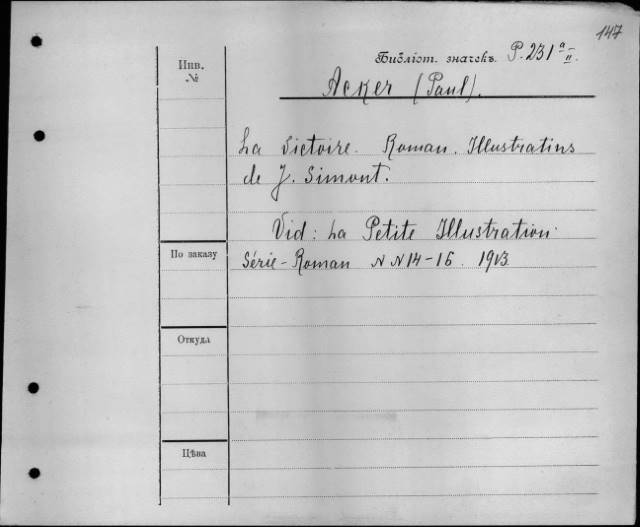 147
Библіот. значекъ P. 231 a/II.
Инв.
№
Acker (Paul).
La Victoire. Roman. Illustratins
de J. Simont.
Vid: La Petite Illustration.
По заказу
Série-Roman N N 14-16. 1913
Откуда
Цѣна